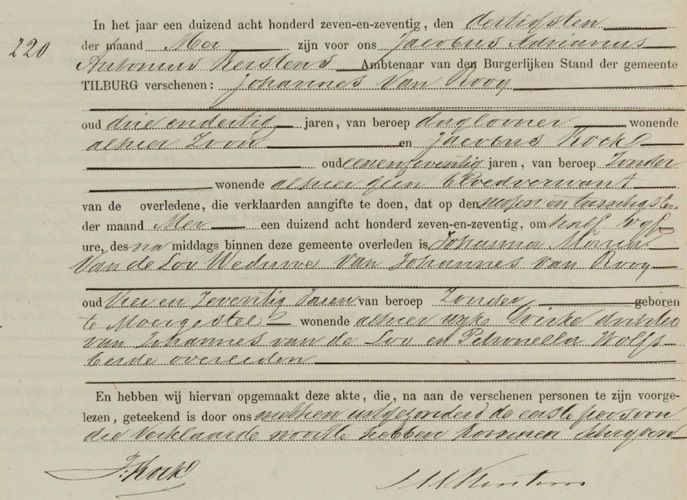 In het jaar een duizend acht honderd zeven-en-zeventig, den dertigsten
220
der maand Mei zijn voor ons Jacobus Adrianus
Antonius Kerstens Ambtenaar van den Burgerlijken Stand der gemeente
TILBURG verschenen: Johannes van Rooy
oud drie en dertig jaren, van beroep daglooner wonende
alhier Zoon en Jacobus Kocks
oud eenenzeventig jaren, van beroep Zonder
wonende alhier geen bloedverwant
van de overledene, die verklaarden aangifte te doen, dat op den negen en twintigsten
der maand Mei een duizend acht honderd zeven-en-zeventig, om half vyf
ure, des na middags binnen deze gemeente overleden is Johanna Maria
van de Lov Weduwe van Johannes van Rooy
oud vier en zeventig Jaren van beroep Zonder geboren
te Moergestel wonende alhier wyke dochter
van Johannes van de Lov en Petronella Wolfs
beide overleden
En hebben wij hiervan opgemaakt deze akte, die, na aan de verschenen personen te zijn voorge-
lezen, geteekend is door ons met hen uitgezonderd de eerste persoon
die verklaarde nooit te hebben kunnen schryven
J: Kocks